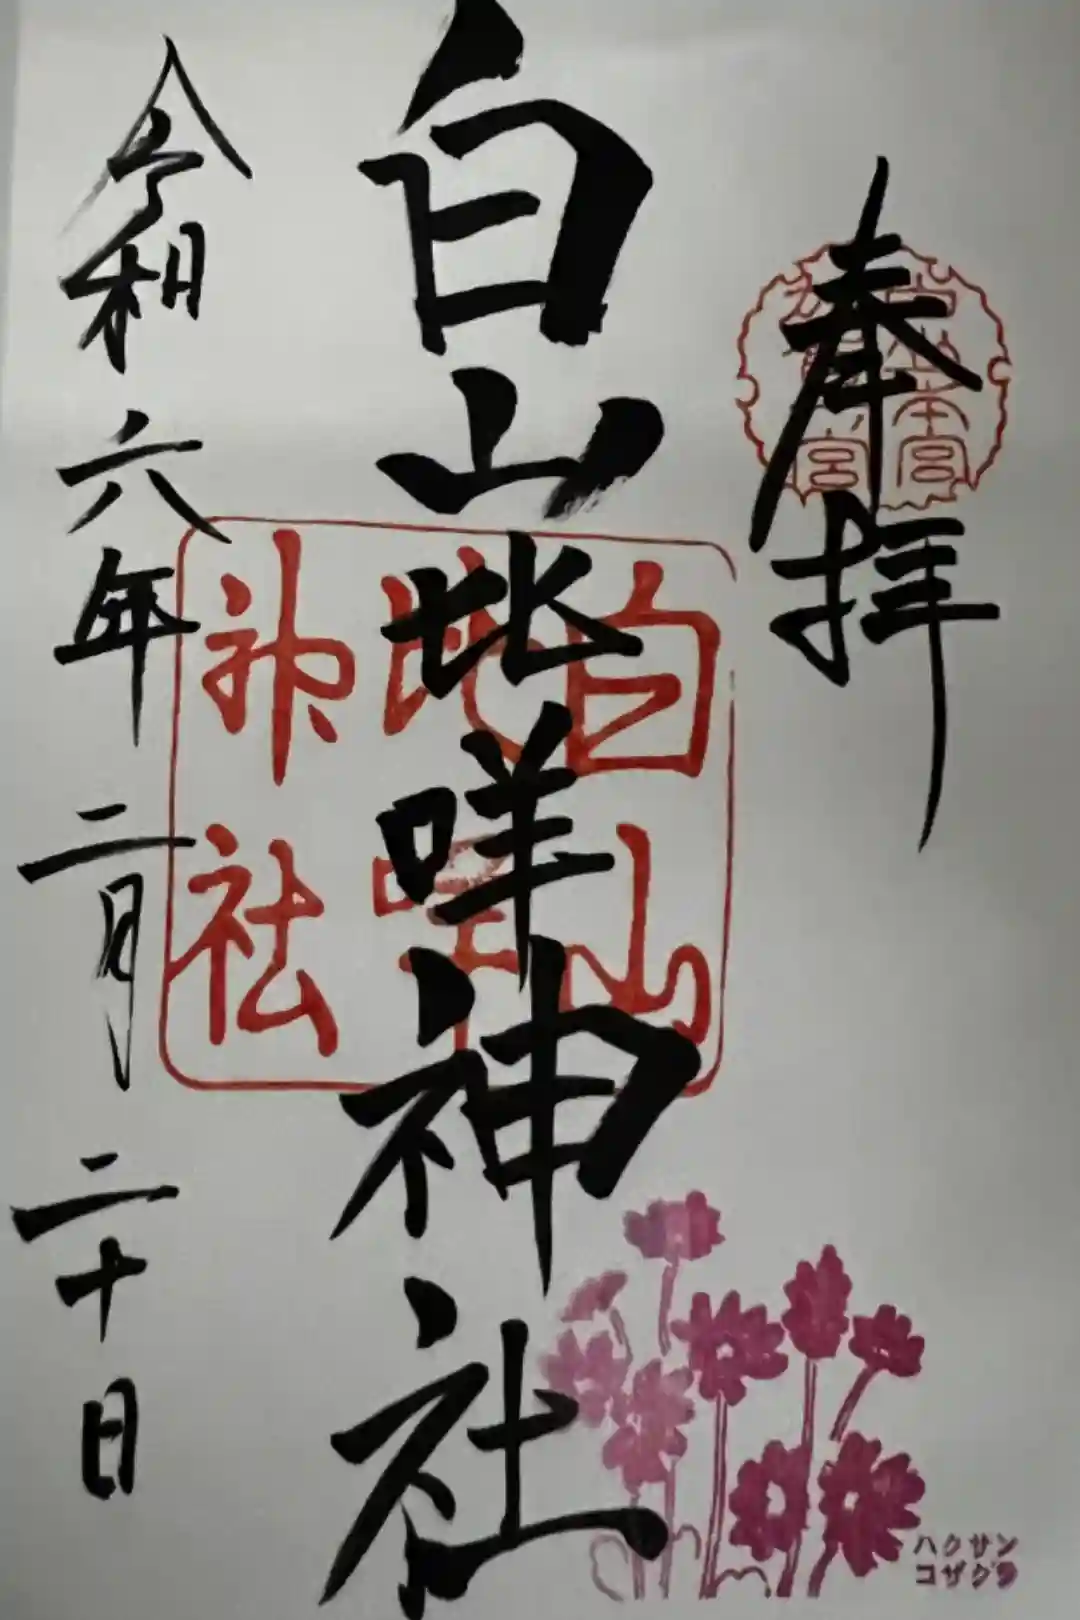 奉拝
白山比咩神社
白山
比咩
神社
令和六年二月二十日
ハクサン
コザクラ